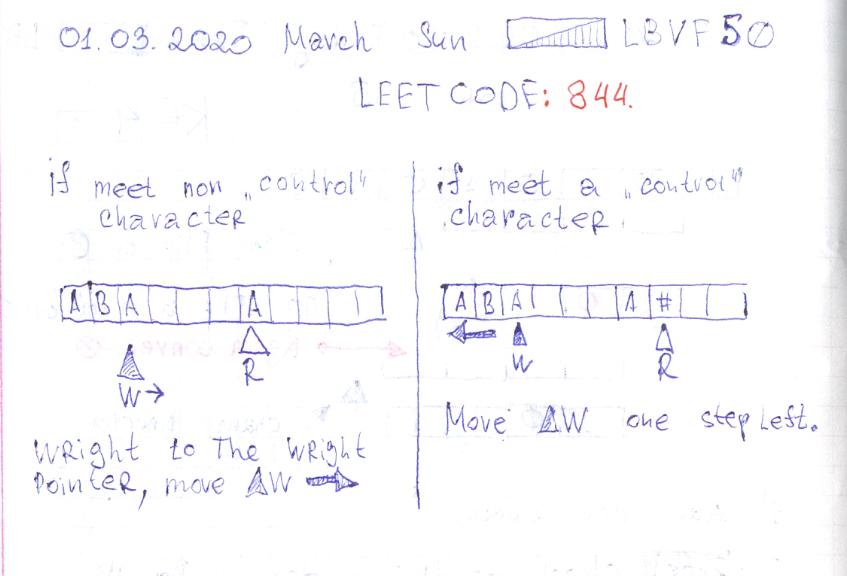 01.03.2020 March Sun LBVF 50
LEETCODE: 844.
if meet non „control"
character
A B A A
W R
Wright to The Wright
Pointer, move W
if meet a „control"
character.
A B A A #
W R
Move W one step Left.